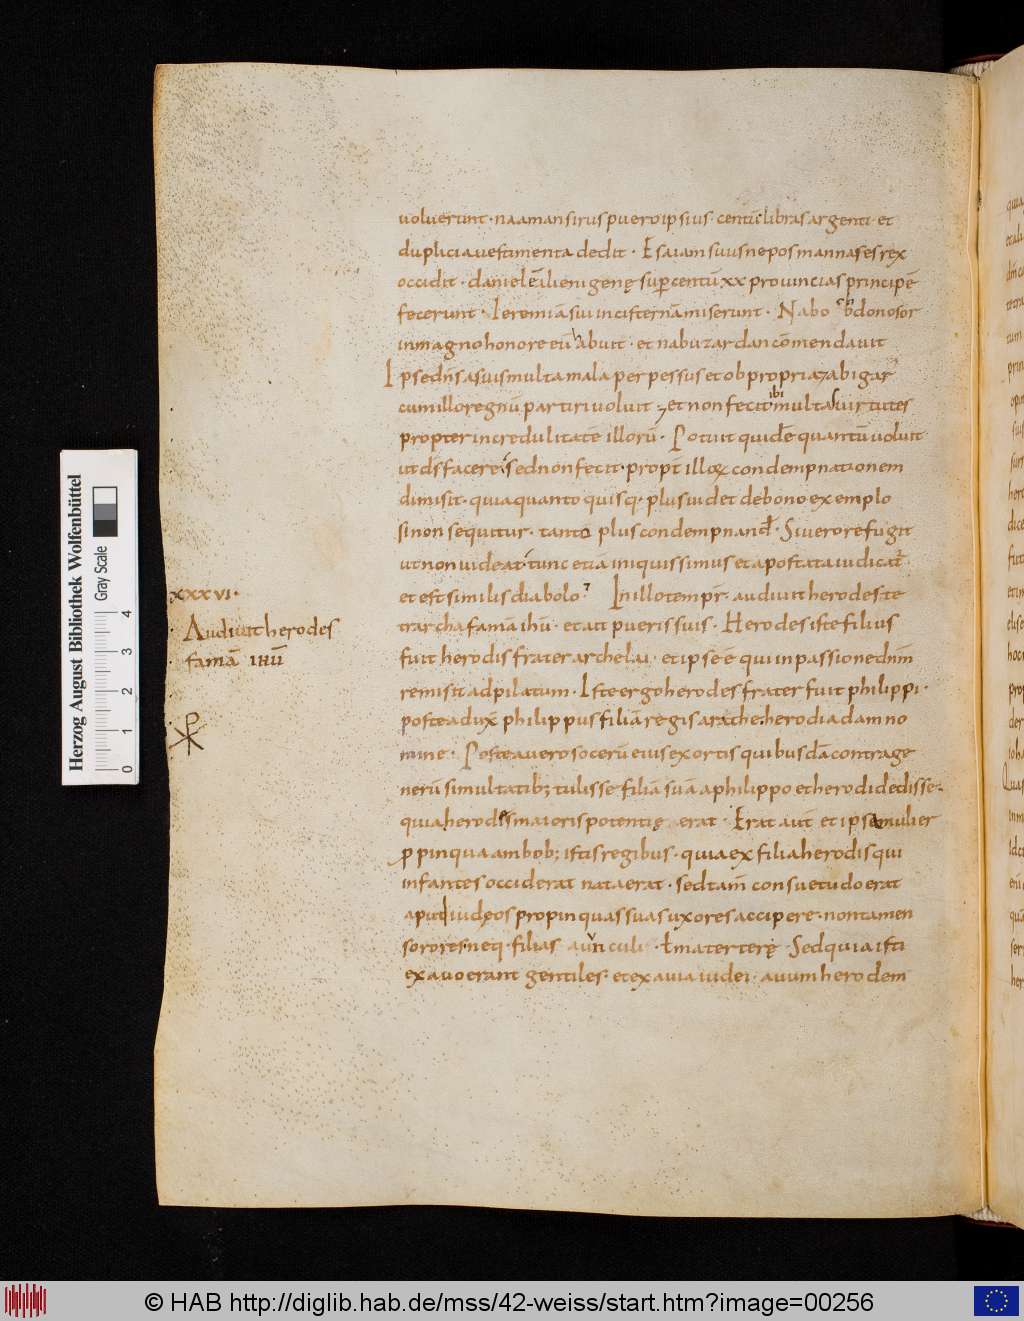 uoluerunt · naaman sirus puero ipsius · centū libras argenti · et
duplicia uestimenta dedit · Esaiam suus nepos mannases rex
occidit · danielē alienigenę sup centū xx prouincias principē
fecerunt · Ieremiā sui in cisternā miserunt · Nabocbdonosor
in magno honore eū abuit · et nabuzardan cōmendauit
Ipse dn̄s a suis multa mala perpessus et ob propria · abigar
cum illo regnū partiri uoluit · et non fecit ibi multas uirtutes
propter incredulitatē illorū · Potuit quidē quantū uoluit
ut ds̄ facere · sed non fecit · propt illoꝝ condempnationem
dimisit · quia quanto quisq · plus uidet de bono exemplo
si non sequitur · tanto plus condempnand · Si uero refugit
ut non uideat · tunc etiā iniquissimus et apostata iudicat
et est similis diabolo · In illo tempr̄ audiuit herodes te
xxxvi ·
Audiuit herodes
famā ihū
trarcha famā ihū · et ait pueris suis · Herodes iste filius
fuit herodis frater archelai · et ipse ē qui in passione dnī
remisit ad pilatum · Iste ergo herodes frater fuit philippi ·
postea dux̄ philippus filiā regis arache · herodiadam no
mine · Postea uero socerū eius exortis quibusdā contra ge
nerū simultatib; tulisse filiā suā a philippo et herodi dedisse ·
quia herodes maioris potentię erat · Erat aut̄ et ipsa mulier
ꝓpinqua ambob; istis regibus · quia ex filia herodis qui
infantes occiderat nata erat · sed tam̄ consuetudo erat
aput iudęos propinquas suas uxores accipere · non tamen
sorores · neq · filias auunculi · ł materterę · Sed quia isti
ex auo erant gentiles · et ex auia iudei · auum herodem
Herzog August Bibliothek Wolfenbüttel
Gray Scale
0 1 2 3 4
© HAB http://diglib.hab.de/mss/42-weiss/start.htm?image=00256